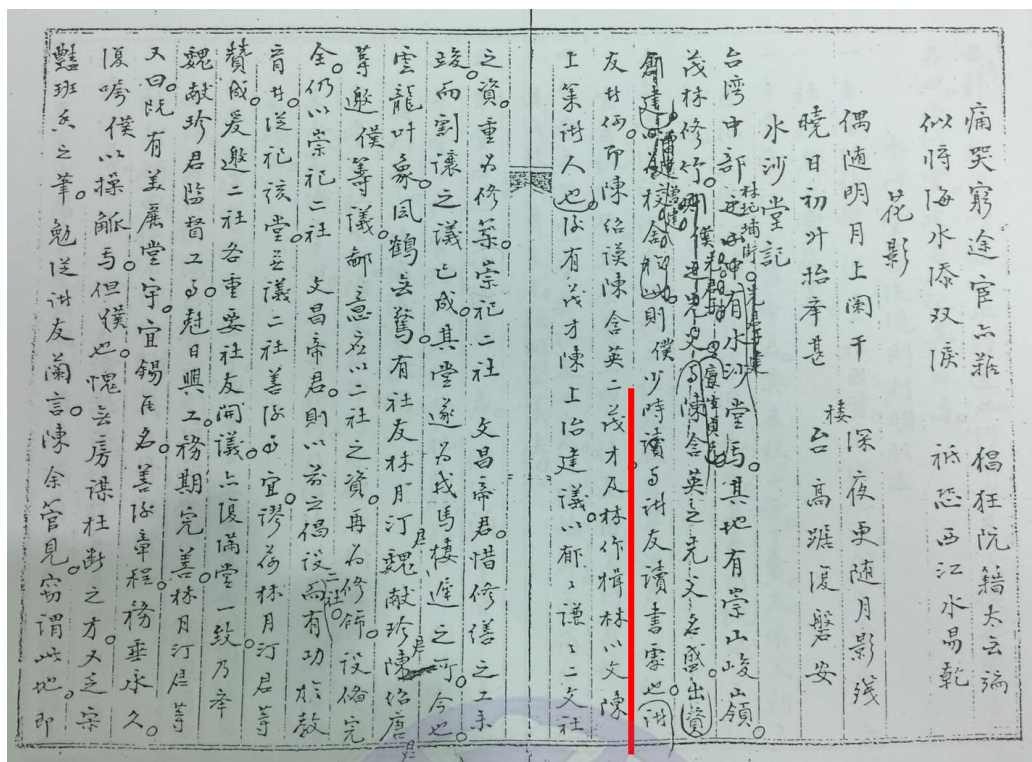 痛哭窮途宦亦難　猖狂阮籍太無端
似將海水添双淚　祗恐西江水易乾
花影
偶随明月上闌干　深夜更随月影残
曉日初升抬举甚　楼台高踞復磐安
水沙堂記
台湾中部林圮埔街有水沙堂焉。其地有崇山峻嶺。
茂林修竹。陳含英之堯父名盛出資
創建校舍則僕少時讀与諸友讀書處也
友廿何即陳紹謨陳含英二茂才。及林作楫林以文陳
上第諸人也。後有茂才陳上治建議以郁郁謙謙二文社
之資。重為修築崇祀二社　文昌帝君。惜修僐之工未
竣。而割讓之議已成。其堂遂為戎馬棲遲之所。今也。
雲龍叶象。風鶴無驚。有社友林月汀君魏献珍君陳紹唐君
等邀僕等議。鄙意應以二社之資。再為修飾。設俻完
全。仍以崇祀二社　文昌帝君。則以前之倡設二社。而有功於敎
育廿。从祀該堂。並議二社善後事宜。謬荷林月汀君等
賛成。爰邀二社各重要社友開議。亦復滿堂一致。乃举
魏献珍君監督工事。尅日興工。務期完善。林月汀君等
又曰。既有美麗堂宇。宜錫佳名。善後章程。務垂永久。
復嘱僕以操觚焉。但僕也愧無房謀杜断之才。又乏宋
豔班香之筆。勉从諸友蘭言。陳余管見。窃謂此地。即